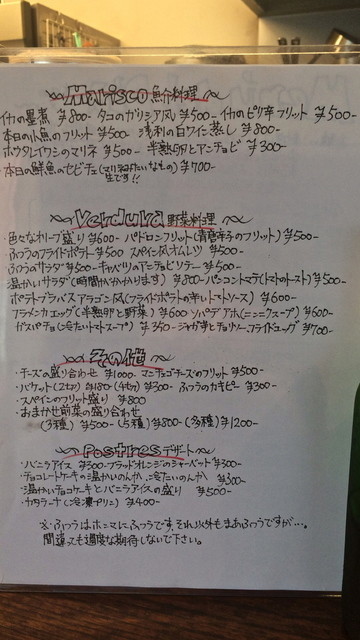 Marisco 魚介料理
イカの墨煮 ¥800- タコのガリシア風 ¥500- イカのピリ辛フリット ¥500-
本日の小魚のフリット ¥500 浅利の白ワイン蒸し ¥800-
ホウタレイワシのマリネ ¥500- 半熟卵とアンチョビ ¥300-
本日の鮮魚のセビチェ(マリネみたいなもの) ¥700-
生です!!
Verdura 野菜料理
色々なオリーブ盛り ¥600- パドロンフリット(青唐辛子のフリット) ¥500-
ふつうのフライドポテト ¥500 スペイン風オムレツ ¥500-
ふつうのサラダ ¥500- キャベツのアンチョビソテー ¥500-
温かいサラダ(時間かかかります) ¥800- パンコントマテ(トマトのトースト) ¥500-
ポテトブラバス アラゴン風(フライドポテトの辛いトマトソース) ¥600-
フラメンカエッグ(半熟卵と野菜) ¥600 ソパデアホ(ニンニクスープ) ¥600-
ガスパチョ(冷たいトマトスープ) ¥350- ジャガ芋とチョリソーフライドエッグ ¥700-
その他
・チーズの盛り合わせ ¥1000- マンチェゴチーズのフリット ¥500-
・バケット(2切) ¥180-(4切) ¥300- ふつうのカキピー ¥300-
・スペインのフリット盛り ¥800
・おまかせ前菜の盛り合わせ
(3種) ¥500-(5種) ¥800-(多種) ¥1200-
Postres デザート
・バニラアイス ¥300- ブラッドオレンジのシャーベット ¥300-
・チョコレートケーキの温かいのんか、冷たいのんか ¥300-
・温かいチョコケーキとバニラアイスの盛り ¥500-
・カタラーナ(冷凍プリン) ¥400-
※ふつうはホンマにふつうです。それ以外もまあふつうですが…。
間違っても過度な期待しないで下さい。